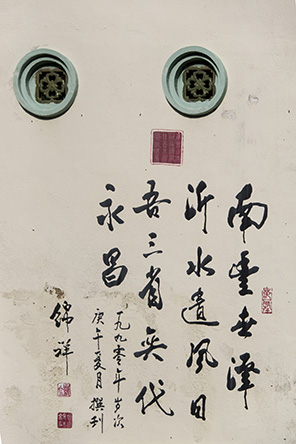 南豐世澤
沂水遺風日
吾三省奕代
永昌
一九九零年岁次
庚午夏月 撰
锦祥